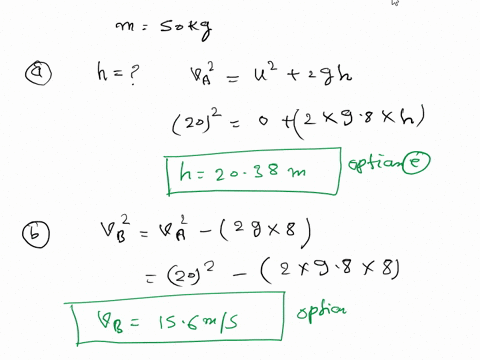 m = 50kg
ⓐ h = ? V_A² = u² + 2gh
(20)² = 0 + (2 × 9.8 × h)
h = 20.38 m option ⓔ
ⓑ V_B² = V_A² - (2g × 8)
= (20)² - (2 × 9.8 × 8)
V_B = 15.6 m/s option